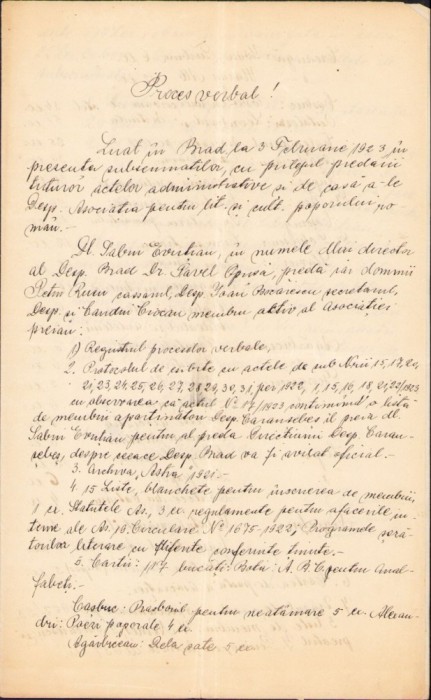 Proces verbal!
Luat în Brad la 3 Februarie 1923 în
presenta subsemnatilor, cu prilejul predării
tuturor actelor administrative si de casă a-le
Desp. Asociatia pentru lit. si cult. poporului ro
mân.-
Dl. Sabin Evutian, în numele dlui director
al Desp. Brad Dr. Pavel Oprisă, predă iar domnii
Petru Rusu cassarul, Desp. Ioan Bocăescu secretarul,
Desp. si Candin Ciocan membru aktiv al Asociatiei
preiau:
1) Registrul proceselor verbale,
2. Protocolul de exibite cu actele de sub Nrii 15, 17, 20,
21, 23, 24, 25, 26, 27, 28, 29, 30, 31, per 1922, 1, 15, 16, 18, 21, 22/1923
cu observarea că actul Nr 17/1923 continuând o listă
de membrii apartinători Desp. Caransebes, îl preia dl.
Sabin Evutian, pentru al preda Directiunii Desp. Caran-
sebes, despre ceeace Desp. Brad va fi avizat oficial.-
3. Archiva "Astra" 1921.-
4. 15 Liste, blanchete pentru înscrierea de membrii,
1 ex. Statutele As., 3 ex. regulamente pentru afacerile in-
terne ale As. 16. Circulare No 1675-1922; Programele seră-
torilor literare cu diferite conferinte tinute.-
5. Cărti: 117 bucăti: Bota: A. B. C. pentru Anal-
fabeti.-
Cosbuc: Răsboiul pentru neatârnare 5 ex. Alexan-
dri: Poezii poporale 4 ex.
Agârbiceanu: Dela sate 5 ex.